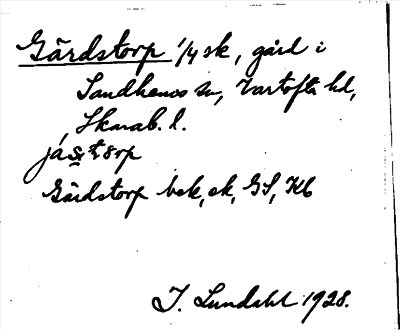 Gärdstorp 1/4 sk, gård i
Sandhems sn, Vartofta hd,
Skarab. l.
Gärdstorp bsk, ek, GS, Kb
I. Lundahl 1928.